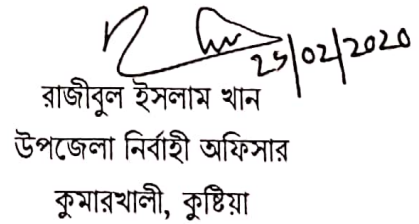 25/02/2020
রাজীবুল ইসলাম খান
উপজেলা নির্বাহী অফিসার
কুমারখালী, কুষ্টিয়া